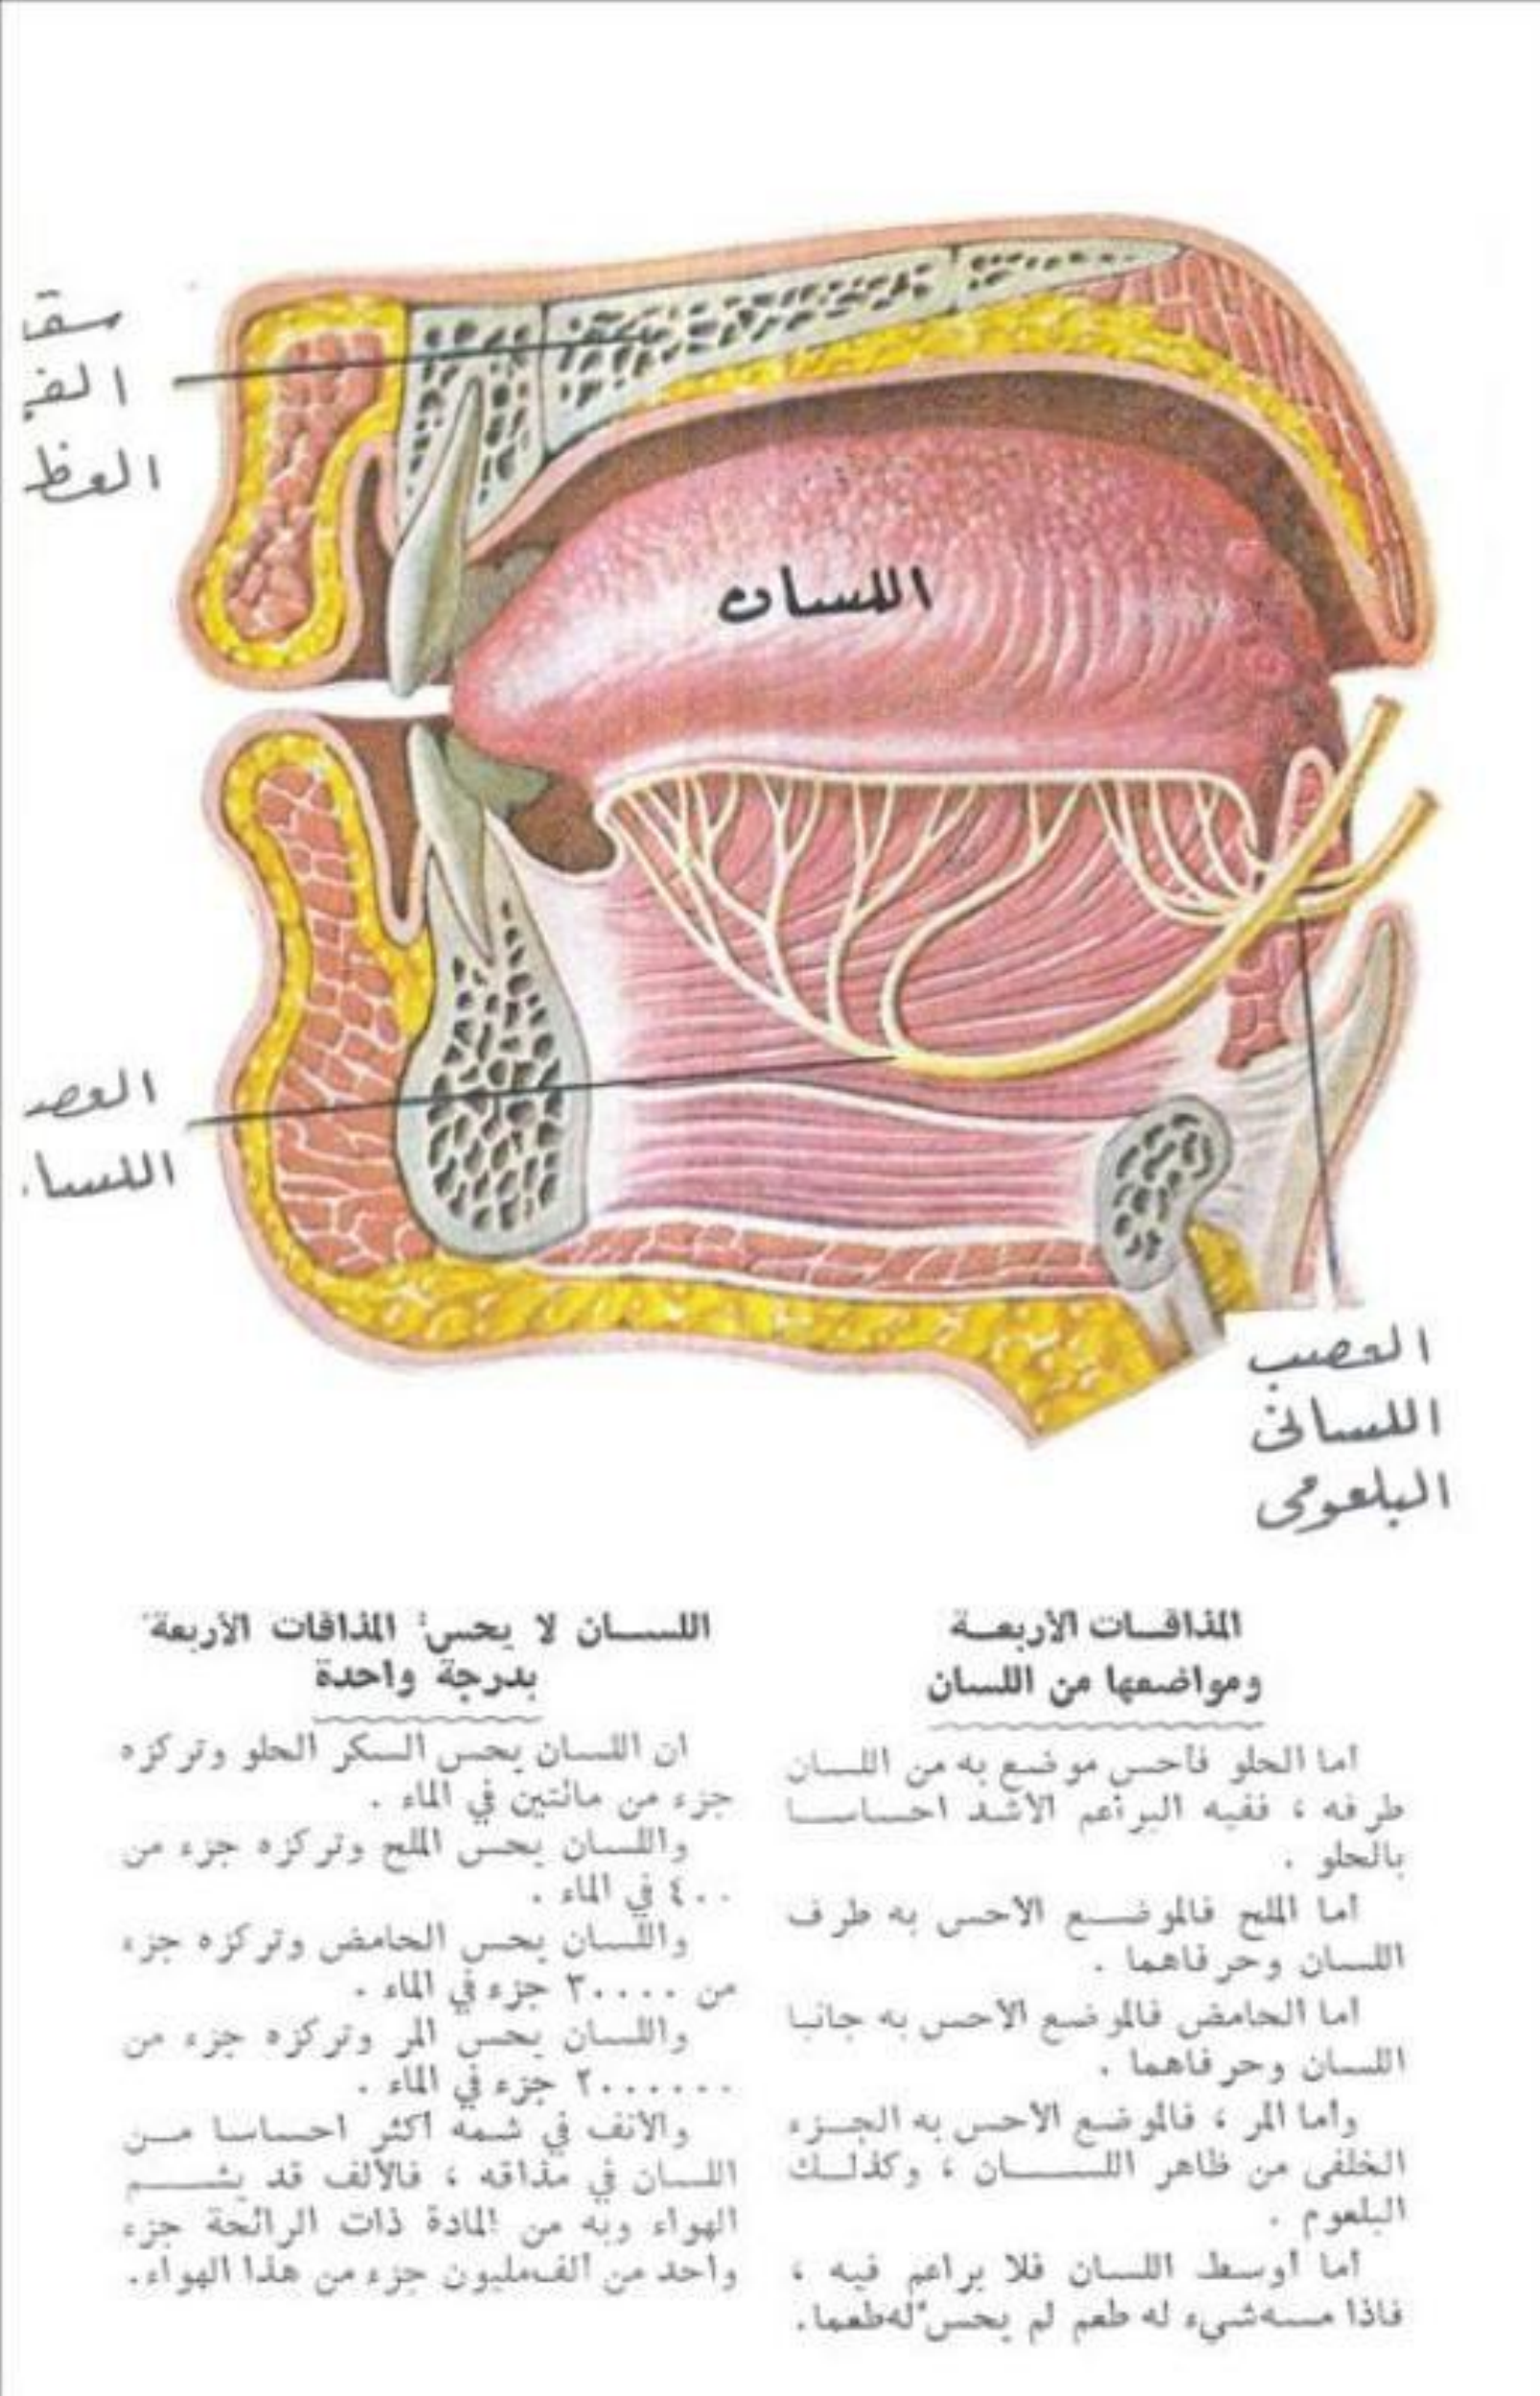 سقـ
الفـ
العظـ
اللسان
العصـ
اللسا
العصب
اللسانى
البلعومى
المذاقات الأربعة
ومواضعها من اللسان
أما الحلو فأحس موضع به من اللسان
طرفه ، ففيه البراعم الأشد احساسا
بالحلو .
أما الملح فالموضع الأحس به طرف
اللسان وحرفاهما .
أما الحامض فالموضع الأحس به جانبا
اللسان وحرفاهما .
وأما المر ، فالموضع الأحس به الجزء
الخلفى من ظاهر اللسان ، وكذلك
البلعوم .
أما أوسط اللسان فلا براعم فيه ،
فاذا مسه شيء له طعم لم يحس له طعما .
اللسان لا يحس المذاقات الأربعة
بدرجة واحدة
ان اللسان يحس السكر الحلو وتركزه
جزء من مائتين في الماء .
واللسان يحس الملح وتركزه جزء من
٤٠٠ في الماء .
واللسان يحس الحامض وتركزه جزء
من ٣٠٠٠٠ جزء في الماء .
واللسان يحس المر وتركزه جزء من
٢٠٠٠٠٠٠ جزء في الماء .
والأنف في شمه أكثر احساسا من
اللسان في مذاقه ، فالألف قد يشم
الهواء وبه من المادة ذات الرائحة جزء
واحد من ألف مليون جزء من هذا الهواء .